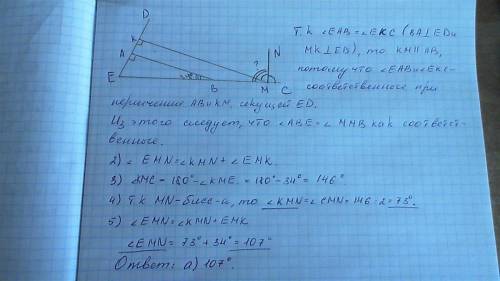 D
K
A
E
B
M
C
N
?
Т.к ∠EAB=∠EKC (BA⊥ED и
MK⊥ED), то KM∥AB,
потому что ∠EAB и ∠EKC-
соответственного при
пересечение AB и KM, секущей ED.
Из этого следует, что ∠ABE=∠MMB как соответст-
венного.
2) ∠EMN=∠KMN+∠EMK.
3) KMC=180°-∠KME.=180°-34°=146°
4) Т.к MN-бисс-а, то ∠KMN=∠CMN=146:2=73°.
5) ∠EMN=∠KMN+EMK
∠EMN=73°+34°=107°
Ответ: а) 107°.